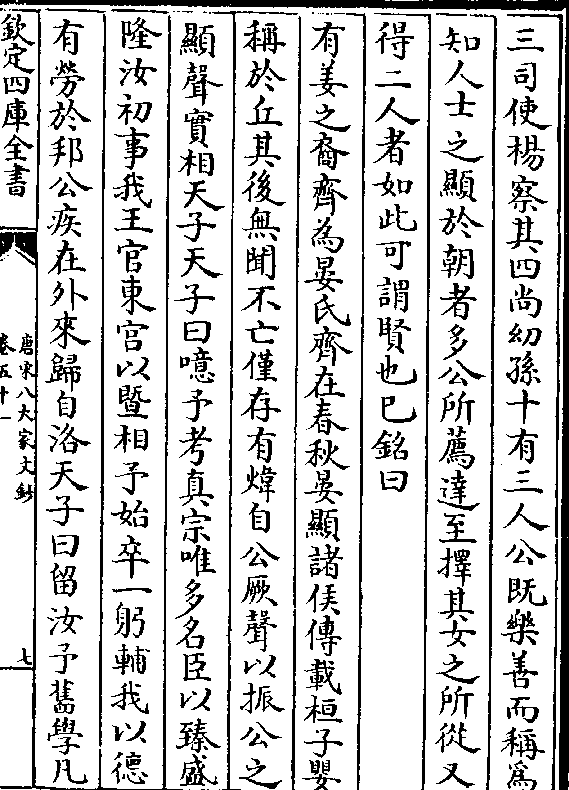 三司使楊察其四尚幼孫十有三人公既樂善而稱為
知人士之顯於朝者多公所薦達至擇其女之所從又
得二人者如此可謂賢也已銘曰
有姜之裔齊為晏氏齊在春秋晏顯諸侯傳載桓子嬰
稱於丘其後無聞不亡僅存有煒自公厥聲以振公之
顯聲實相天子天子曰噫予考真宗唯多名臣以臻盛
隆汝初事我王官東宮以暨相予始卒一躬輔我以德
有勞於邦公疾在外來歸自洛天子曰留汝予舊學凡
欽定四庫全書
唐宋八大家文鈔
卷五十一
七